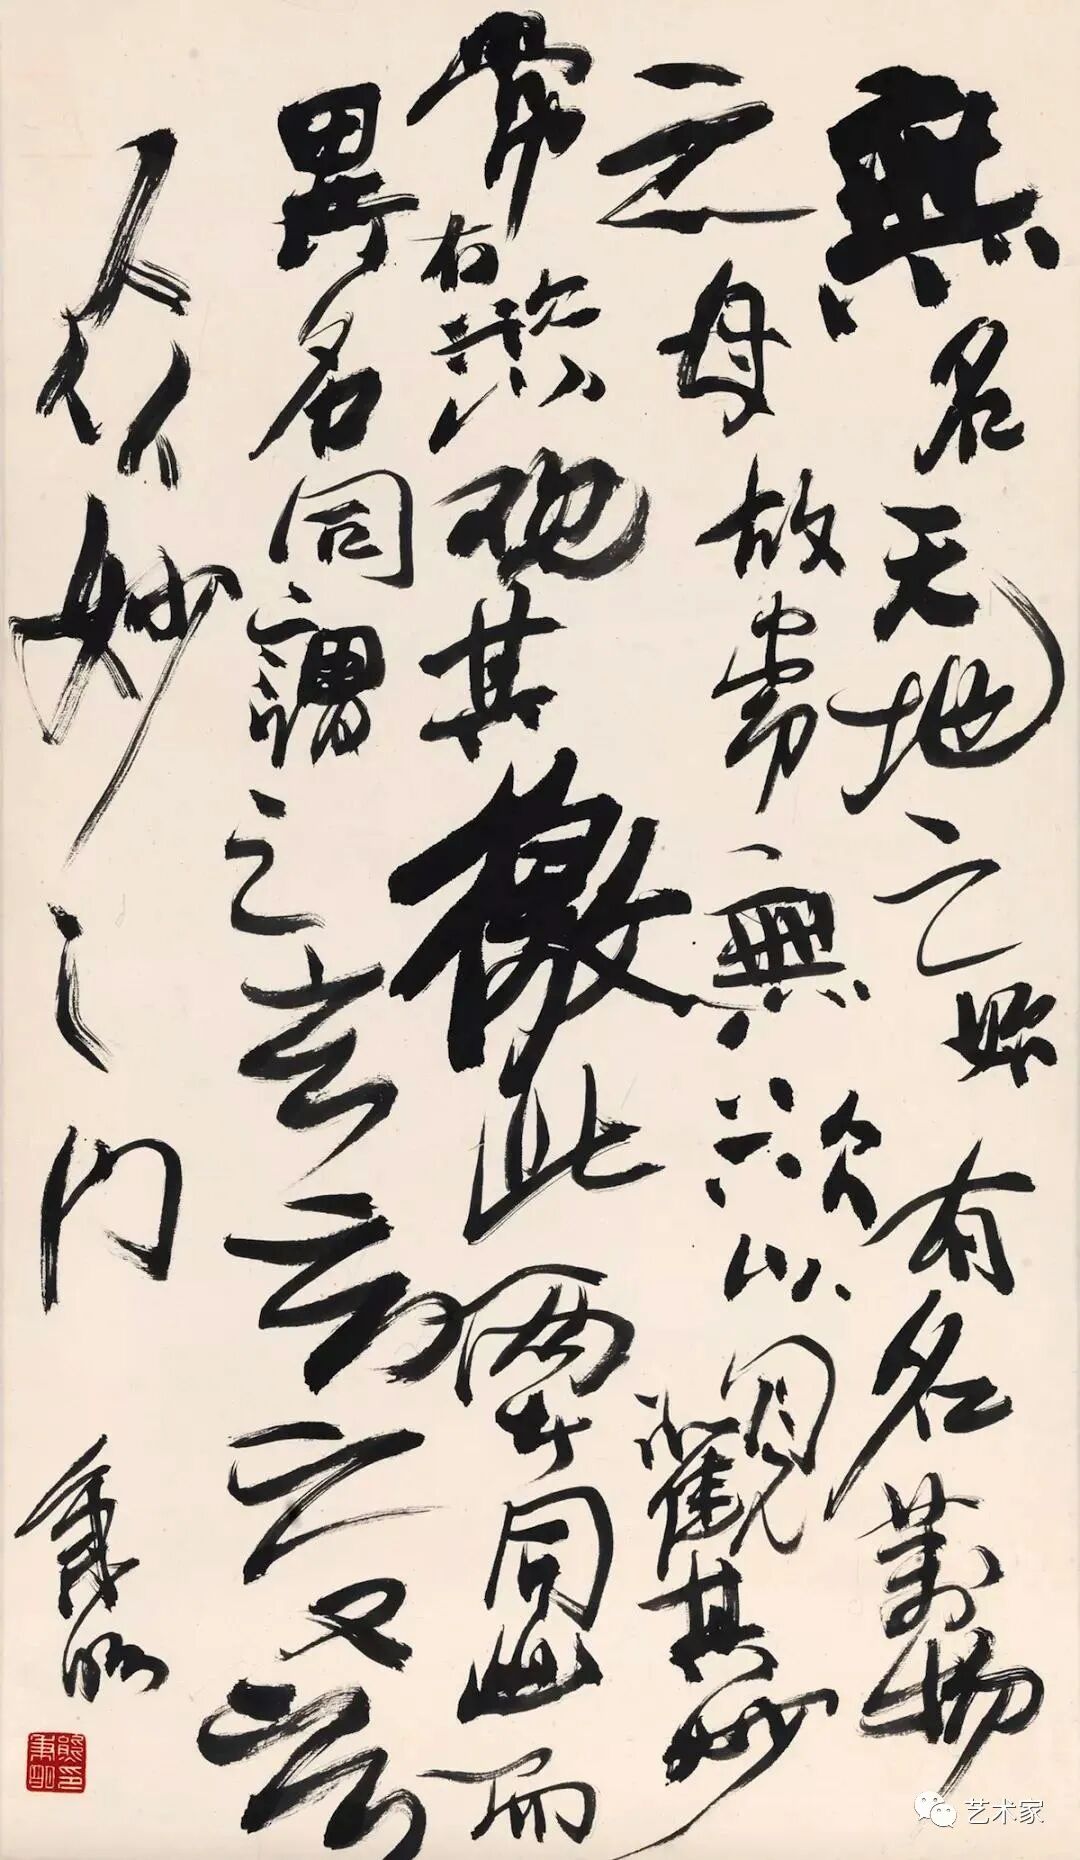 無名天地之始有名萬物
之母故常無欲以觀其妙
常有欲以观其徼此兩者同出而
異名同謂之玄玄之又玄
众妙之门
秉明
熊印秉明
艺术家